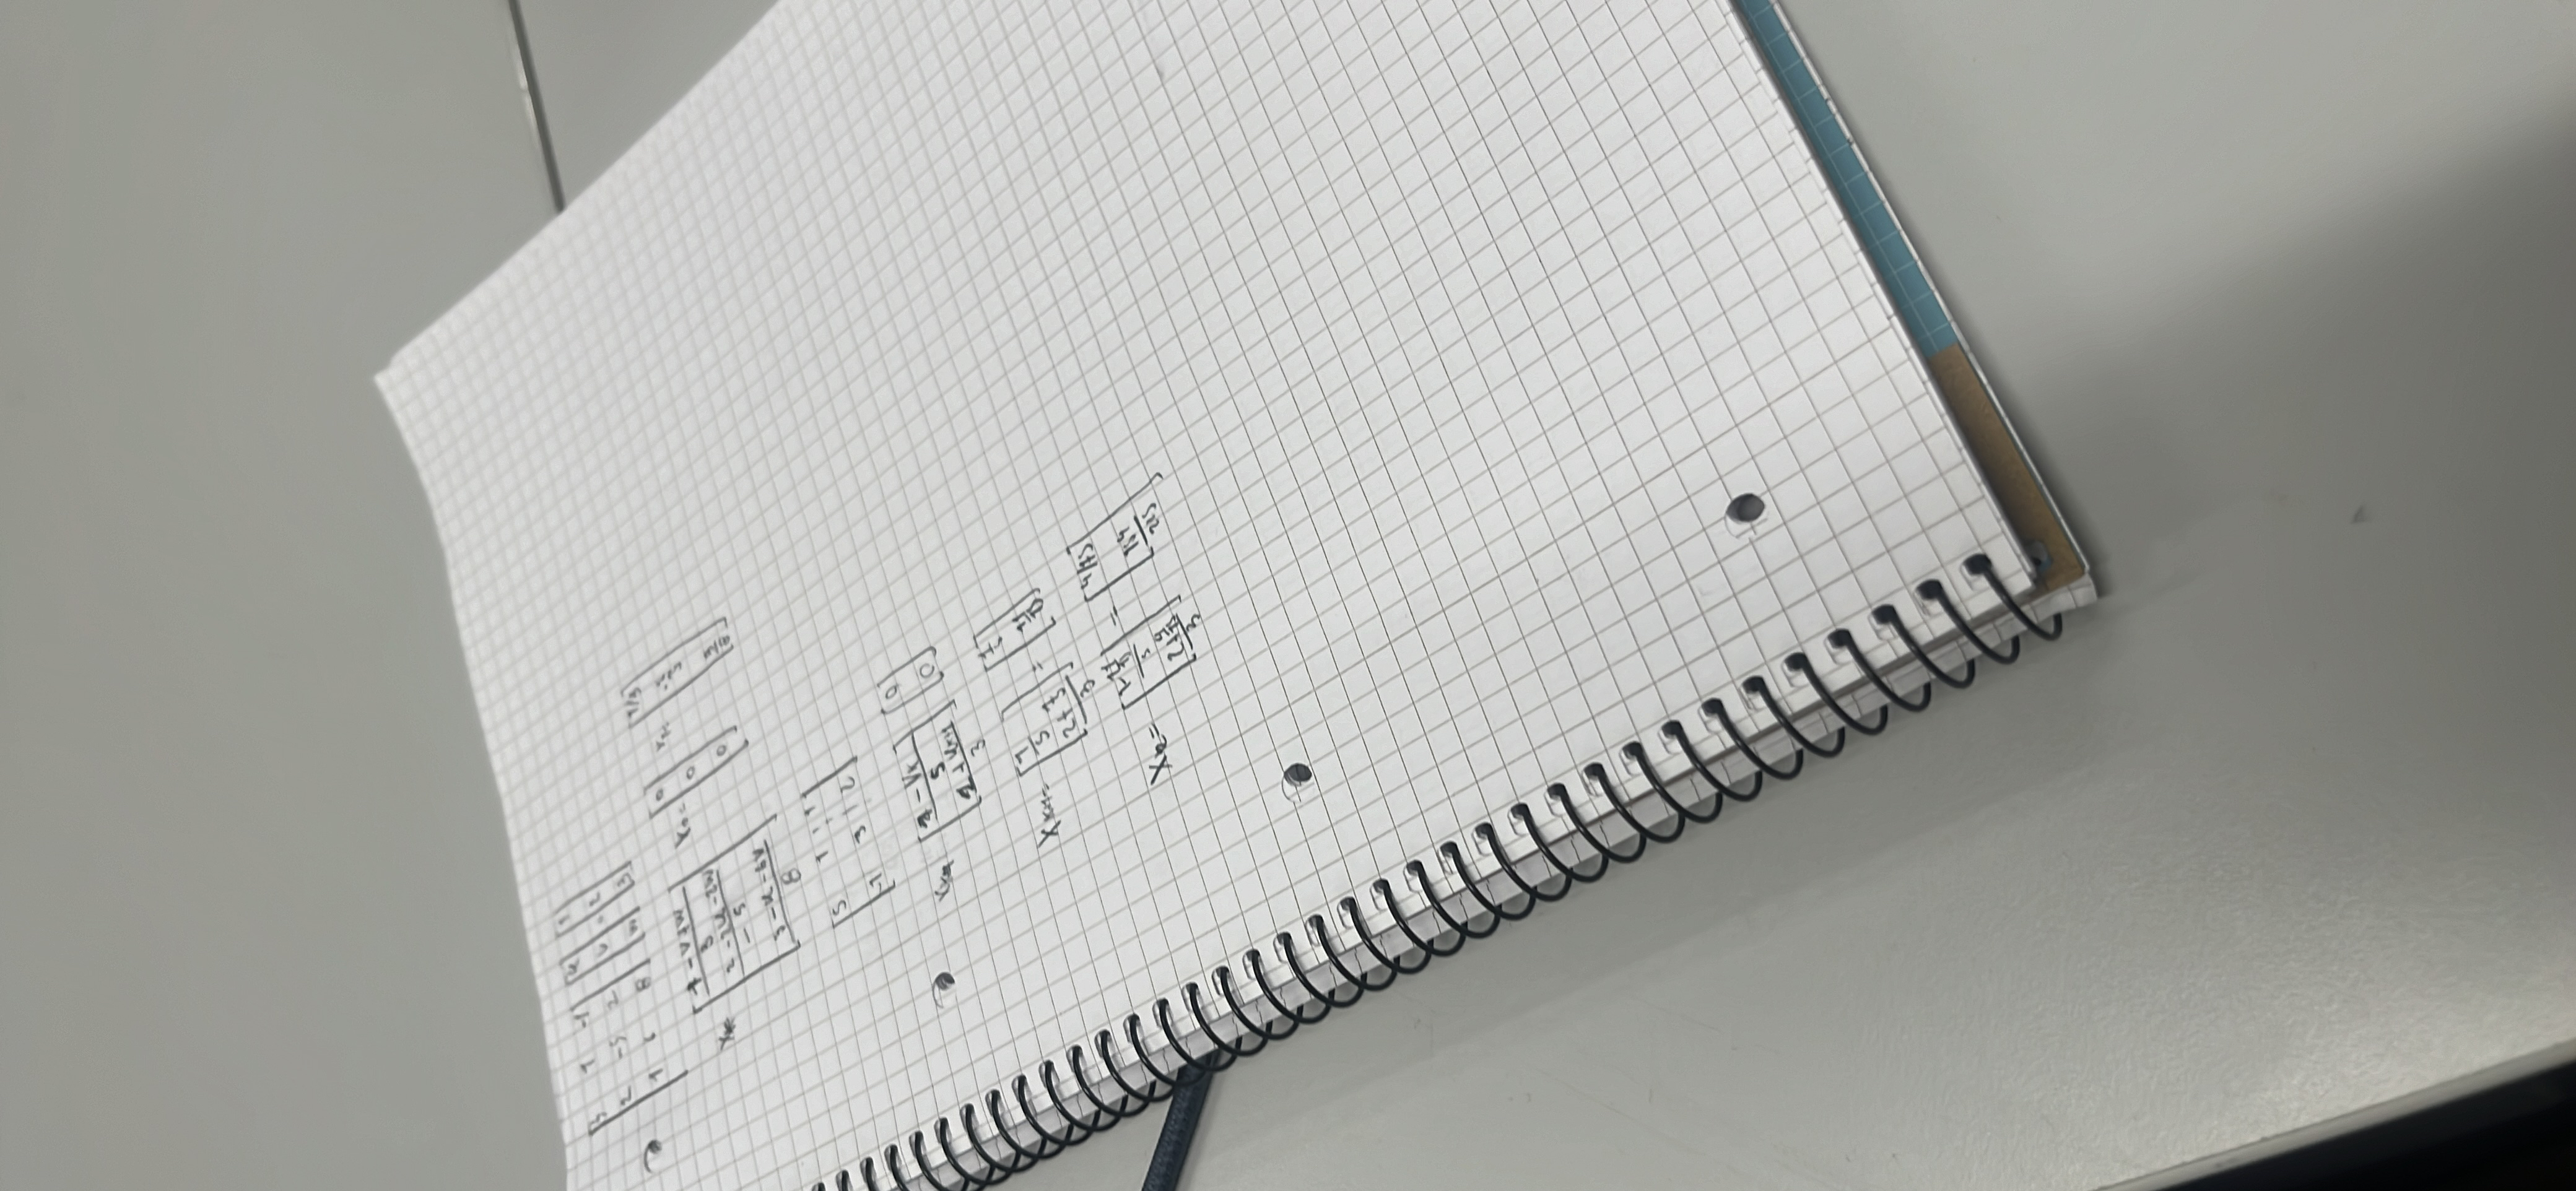 [3 1 -1; 2 -5 2; 1 6 8] [u; v; w] = [1; 2; 3]
[(1-v+w)/3; (2-2u-2w)/-5; (3-u-6v)/8] X₀= [0; 0; 0] [1/3; ; 3/8]
[5 1 | 1; -1 3 | 2]
[(1-Vₖ)/5; (2+Uₖ₊₁)/3] [0; 0]
Xₖ₊₁= [1/5; (2+1/5)/3] = [1/5; 11/15]
X₂= [(1-11/15)/5; (2+4/75)/3] = [4/75; 154/225]